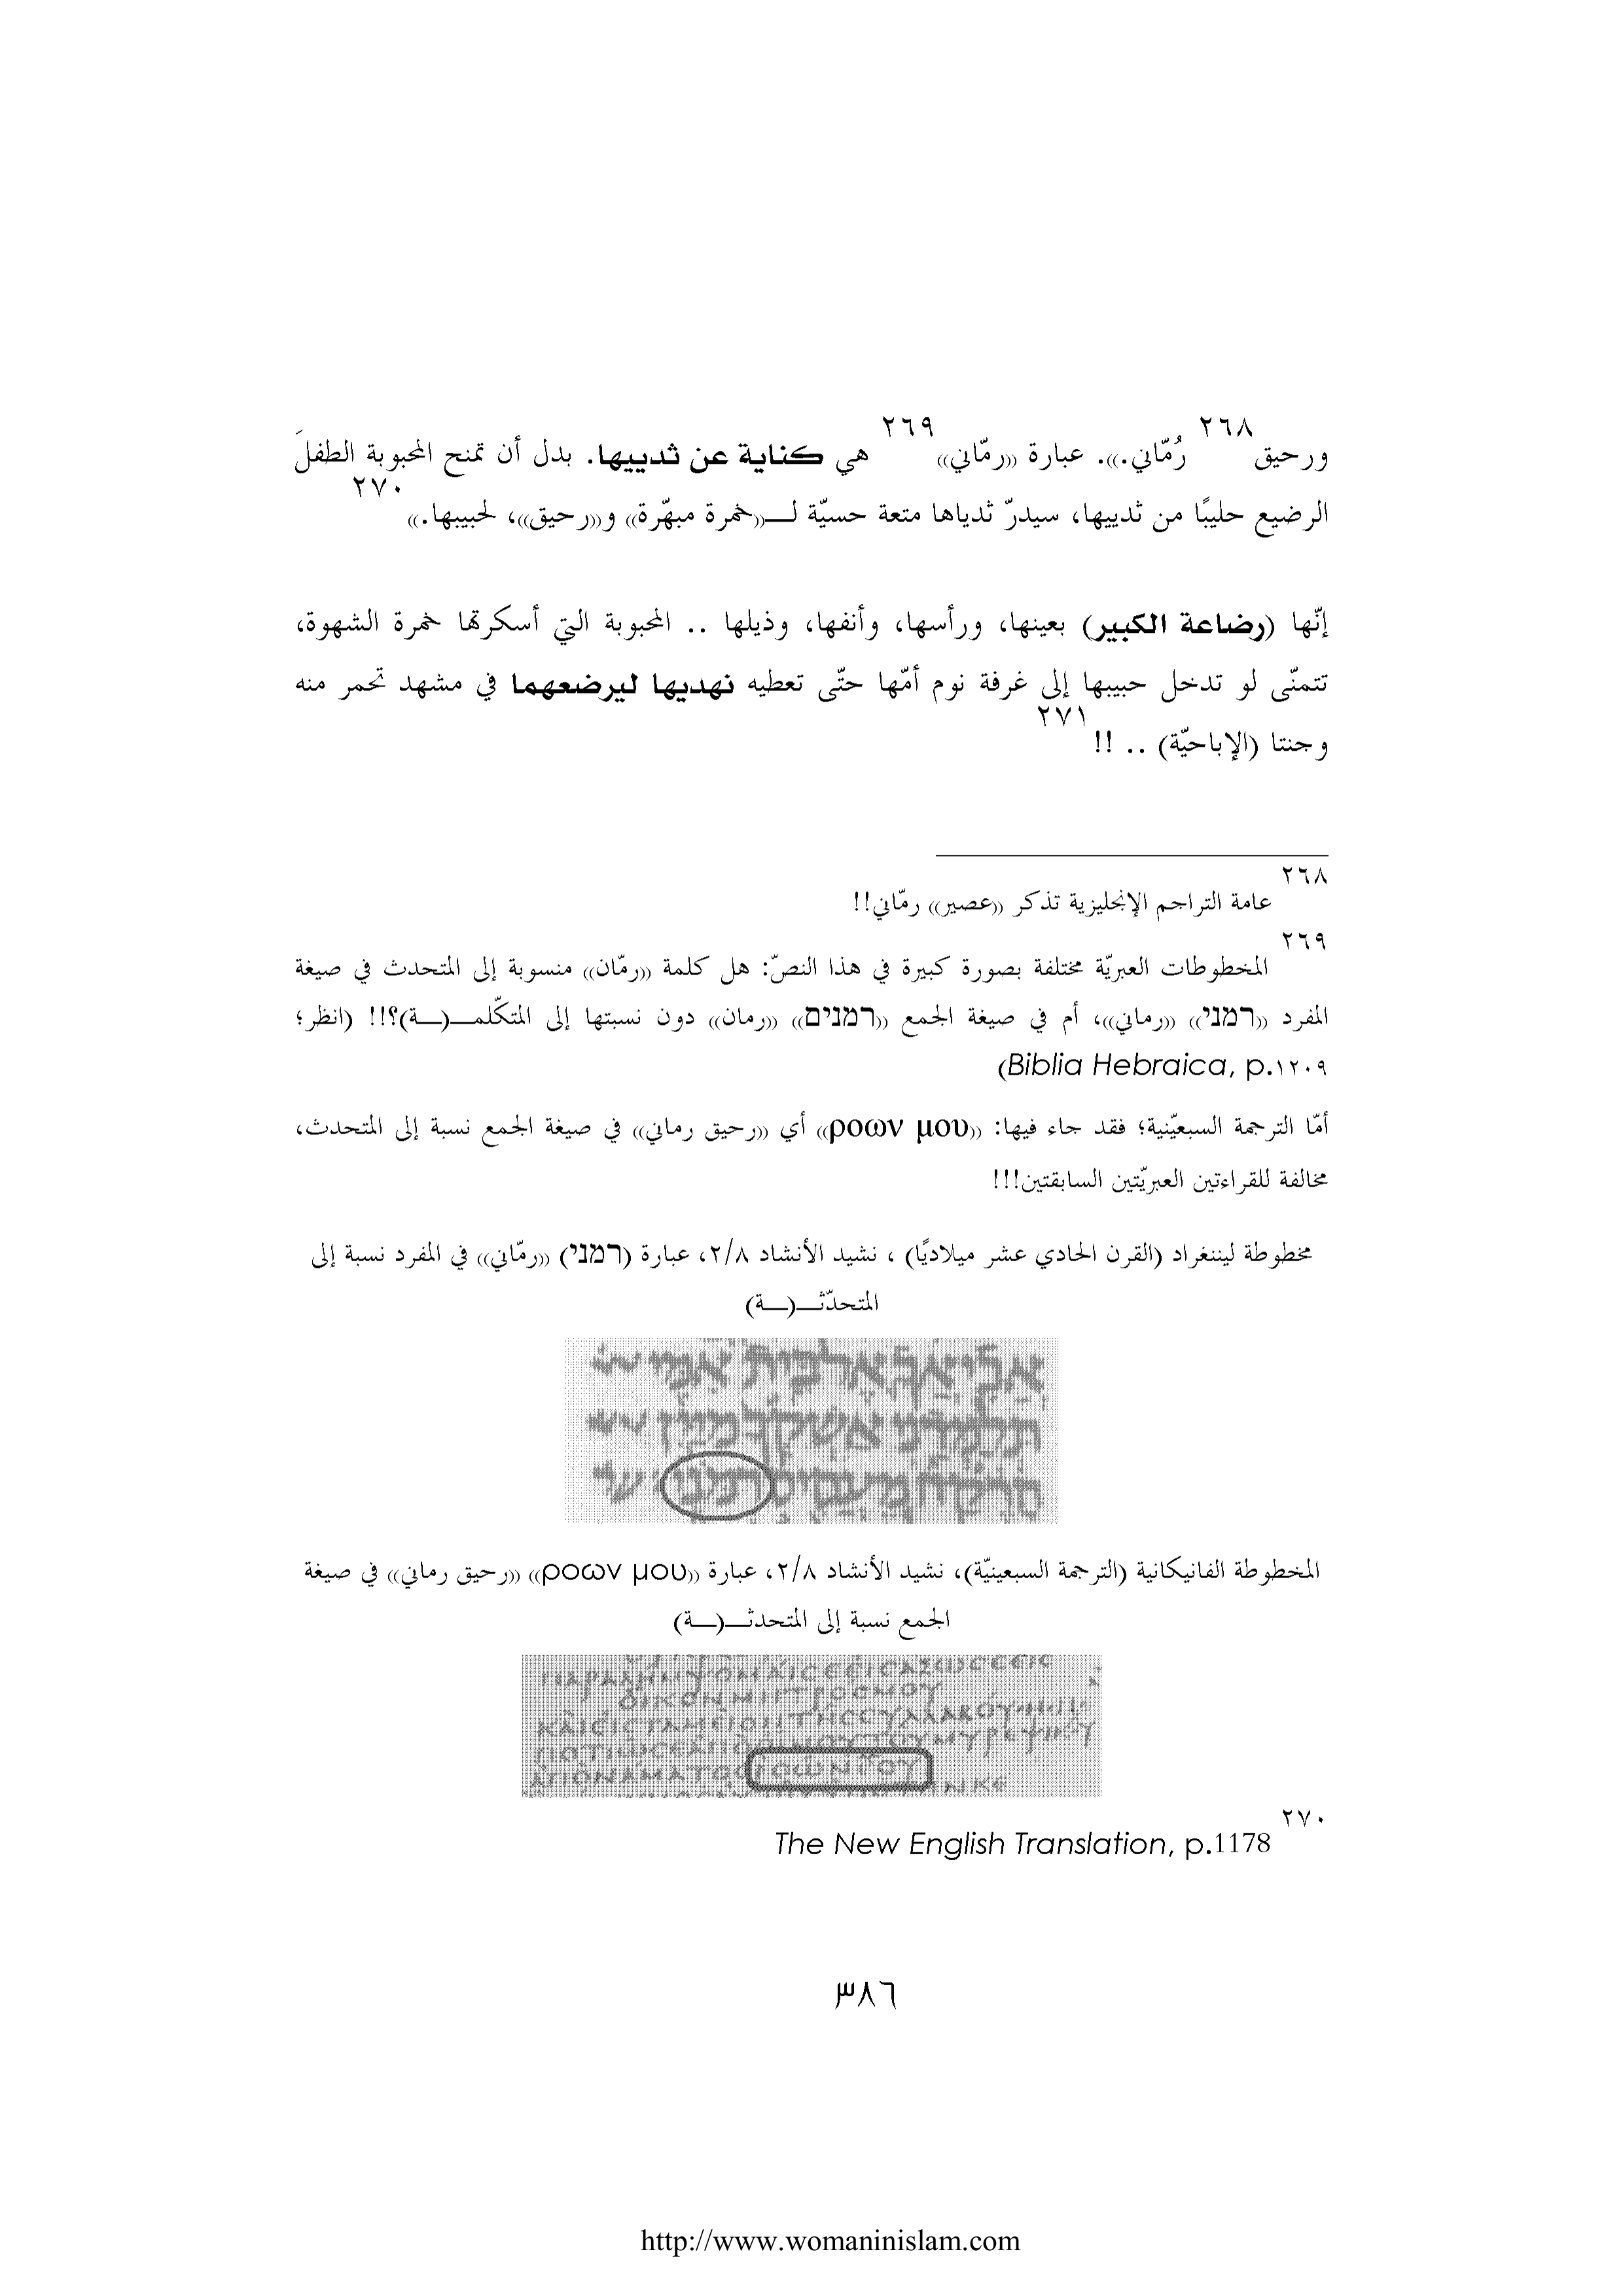 ورحيق٢٦٨ رُمّاني.)). عبارة ((رمّاني))٢٦٩ هي كناية عن ثدييها. بدل أن تمنح المحبوبة الطفلَ
الرضيع حليبًا من ثدييها، سيدرّ ثدياها متعة حسيّة لــ((خمرة مبهّرة)) و((رحيق))، لحبيبها.))٢٧٠
إنّها (رضاعة الكبير) بعينها، ورأسها، وأنفها، وذيلها .. المحبوبة التي أسكرتها خمرة الشهوة،
تتمنّى لو تدخل حبيبها إلى غرفة نوم أمّها حتّى تعطيه نهديها ليرضعهما في مشهد تحمر منه
وجنتا (الإباحيّة) .. !!٢٧١
٢٦٨ عامة التراجم الإنجليزية تذكر ((عصير)) رمّاني!!
٢٦٩ المخطوطات العبريّة مختلفة بصورة كبيرة في هذا النصّ: هل كلمة ((رمّان)) منسوبة إلى المتحدث في صيغة
المفرد ((רמני)) ((رماني))، أم في صيغة الجمع ((רמנים)) ((رمان)) دون نسبتها إلى المتكلّمــ(ــة)؟!! (انظر؛
Biblia Hebraica, p.١٢٠٩)
أمّا الترجمة السبعيّنية؛ فقد جاء فيها: ((ροων μου)) أي ((رحيق رماني)) في صيغة الجمع نسبة إلى المتحدث،
مخالفة للقراءتين العبريّتين السابقتين!!!
مخطوطة ليننغراد (القرن الحادي عشر ميلاديًا) ، نشيد الأنشاد ٢/٨، عبارة (רמני) ((رمّاني)) في المفرد نسبة إلى
المتحدّثــ(ــة)
المخطوطة الفاتيكانية (الترجمة السبعينيّة)، نشيد الأنشاد ٢/٨، عبارة ((ροων μου)) ((رحيق رماني)) في صيغة
الجمع نسبة إلى المتحدثــ(ــة)
٢٧٠ The New English Translation, p.1178
٣٨٦
http://www.womaninislam.com